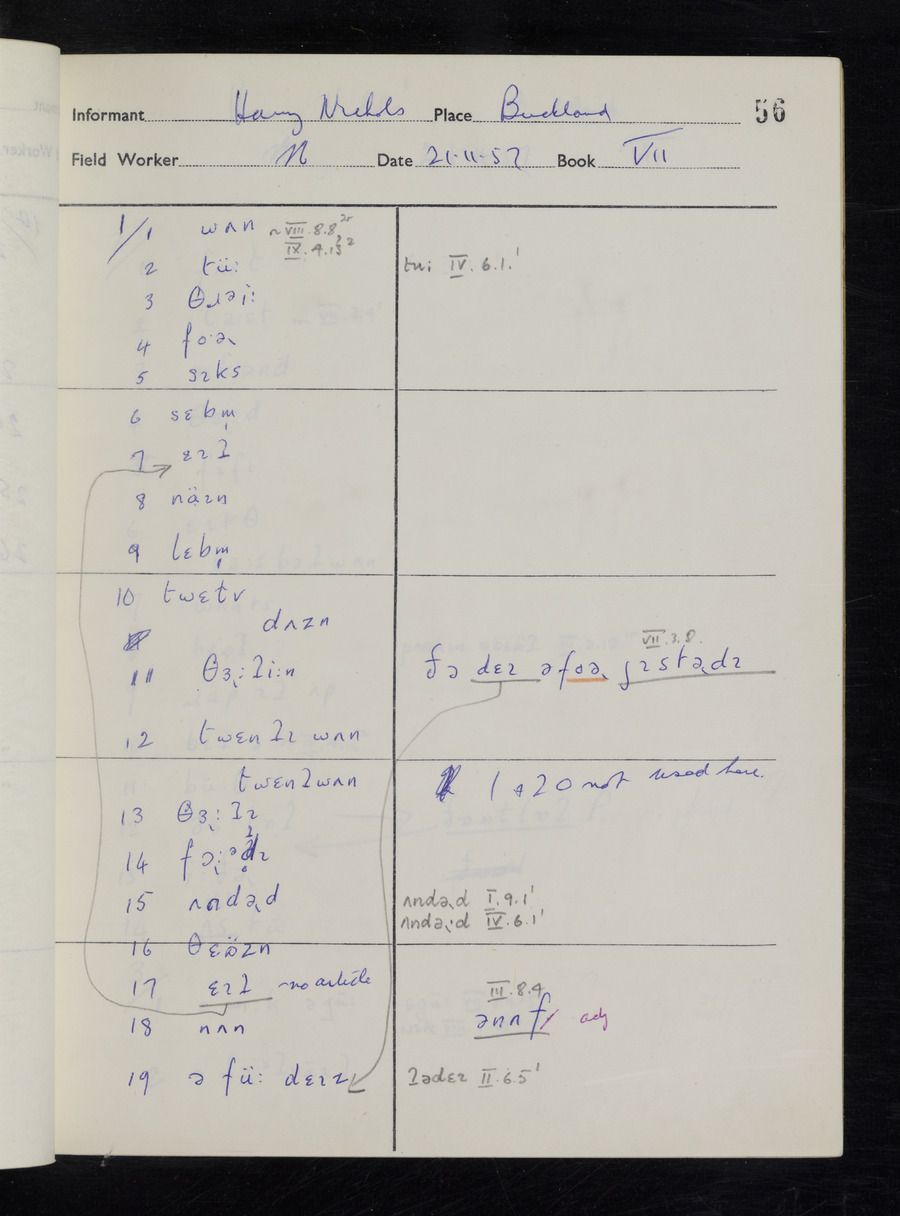 Informant Harry Nichols Place Buckland 56
Field Worker N Date 21·11·57 Book VII
1/1 wʌn ~ VIII.8.8
IX.4.13
2 tü: tu: IV.6.1.¹
3
4
5 sɪks
6 sɛbm̩
7 ɛɪʔ
8 näɪn
9 lɛbm̩
10 twɛtv
dʌzn
11 θɜ˞:ʔi:n
VII.3.8.
ðə dɛɪ əfoə˞ jɪstə˞dɪ
12 twɛnʔɪ wʌn
twɛnʔwʌn 1 & 20 not used here.
13 θɜ˞:ʔɪ
14
15 ʌndə˞d ʌndə˞d I.9.1¹
ʌndə˞·d IV.6.1¹
16
17 ɛɪʔ ~ no article
III.8.4
18 nʌn ənʌf adj
19 ə fü: dɛɪz ʔədɛɪ II.6.5¹